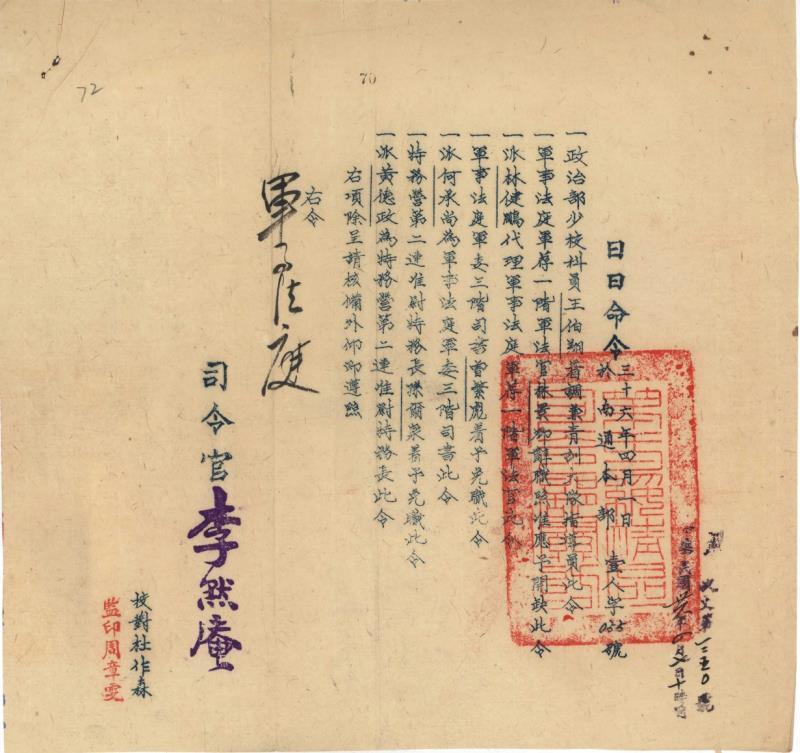 70
72
收文第一三五〇號
日日命令
三十六年四月一日
於南通本部
壹人字055號
一政治部少校科員王伯翔著調兼青訓大隊指導員此令
一軍事法庭軍荐一階軍法官林景卿辭職照准應予開缺此令
一派林健鵬代理軍事法庭軍荐一階軍法官此令
一軍事法庭軍委三階司書曹業彪着予免職此令
一派何承尚為軍事法庭軍委三階司書此令
一特務營第二連准尉特務長陳爾泉着予免職此令
一派黃德政為特務營第二連准尉特務長此令
右項除呈請核備外仰即遵照
右令
軍事法庭
司令官李默庵
校對杜作森
監印周章雯